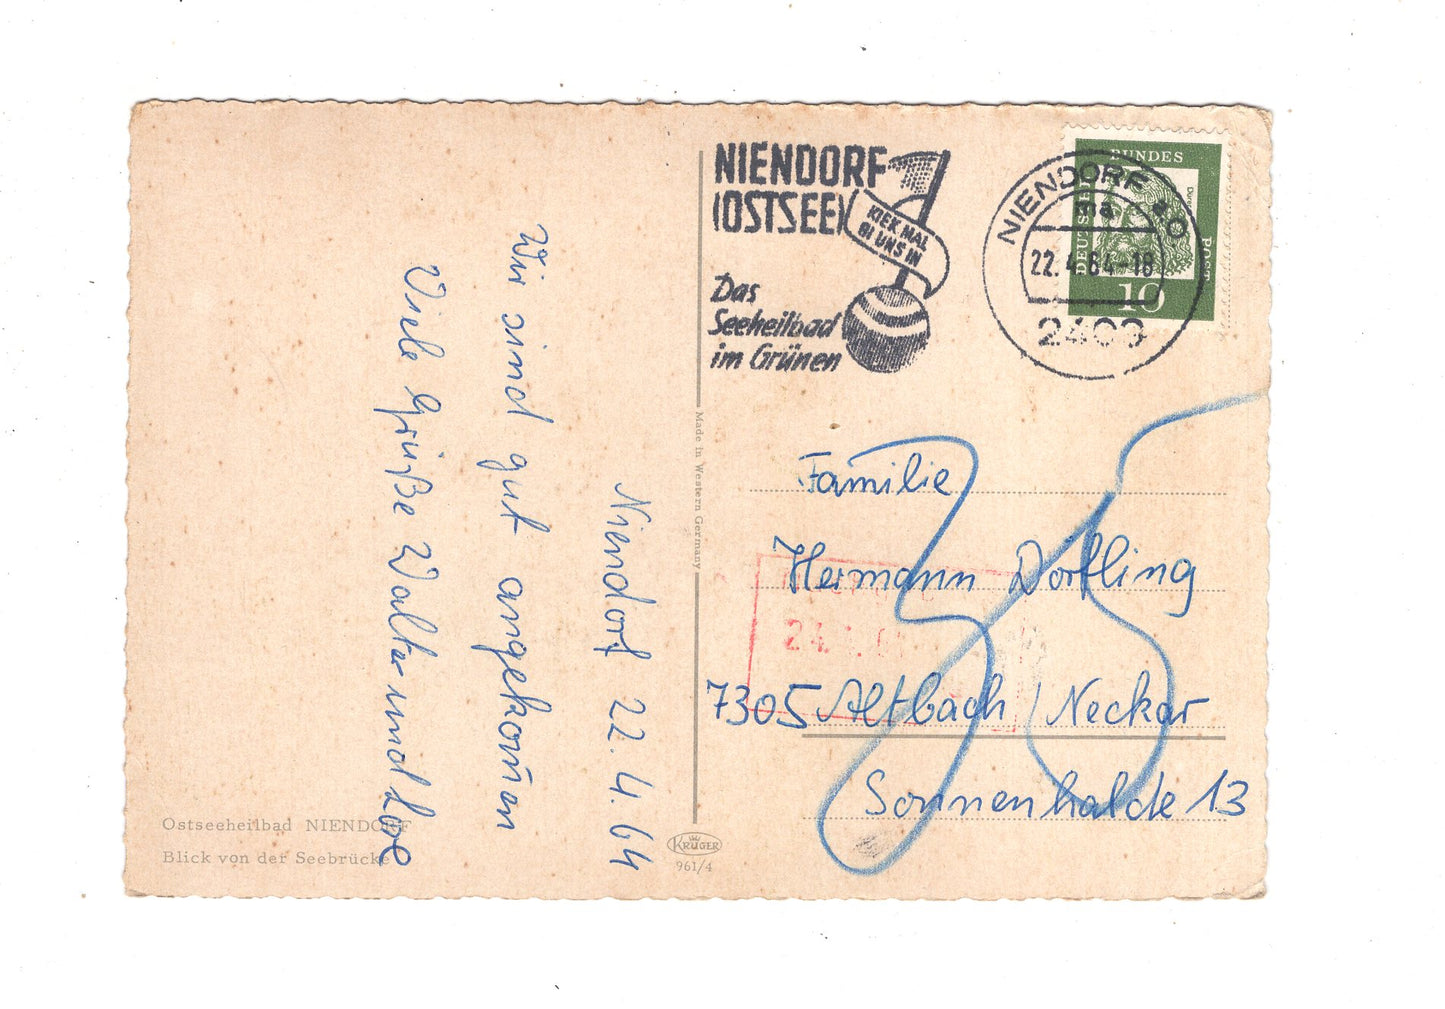 Niendorf 22.4.64
Wir sind gut angekom̄en
Viele Grüße Walter und Lore
Ostseeheilbad NIENDORF
Blick von der Seebrücke
Made in Western Germany
KRÜGER
961/4
NIENDORF
(OSTSEE)
KIEK MAL
BI UNS IN
Das
Seeheilbad
im Grünen
NIENDORF
22.4.64-18
DEUTSCHE BUNDESPOST
10
Familie
Hermann Dörfling
7305 Altbach / Neckar
Sonnenhalde 13
35